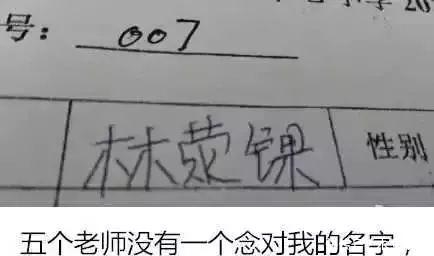 20
号: 007
林荧锞 性别
五个老师没有一个念对我的名字，